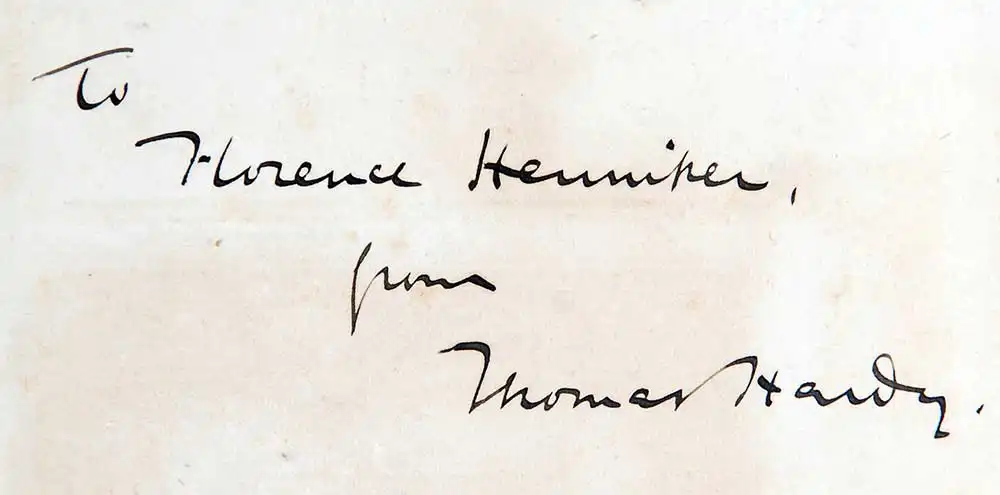 To
Florence Henniker,
from
Thomas Hardy.